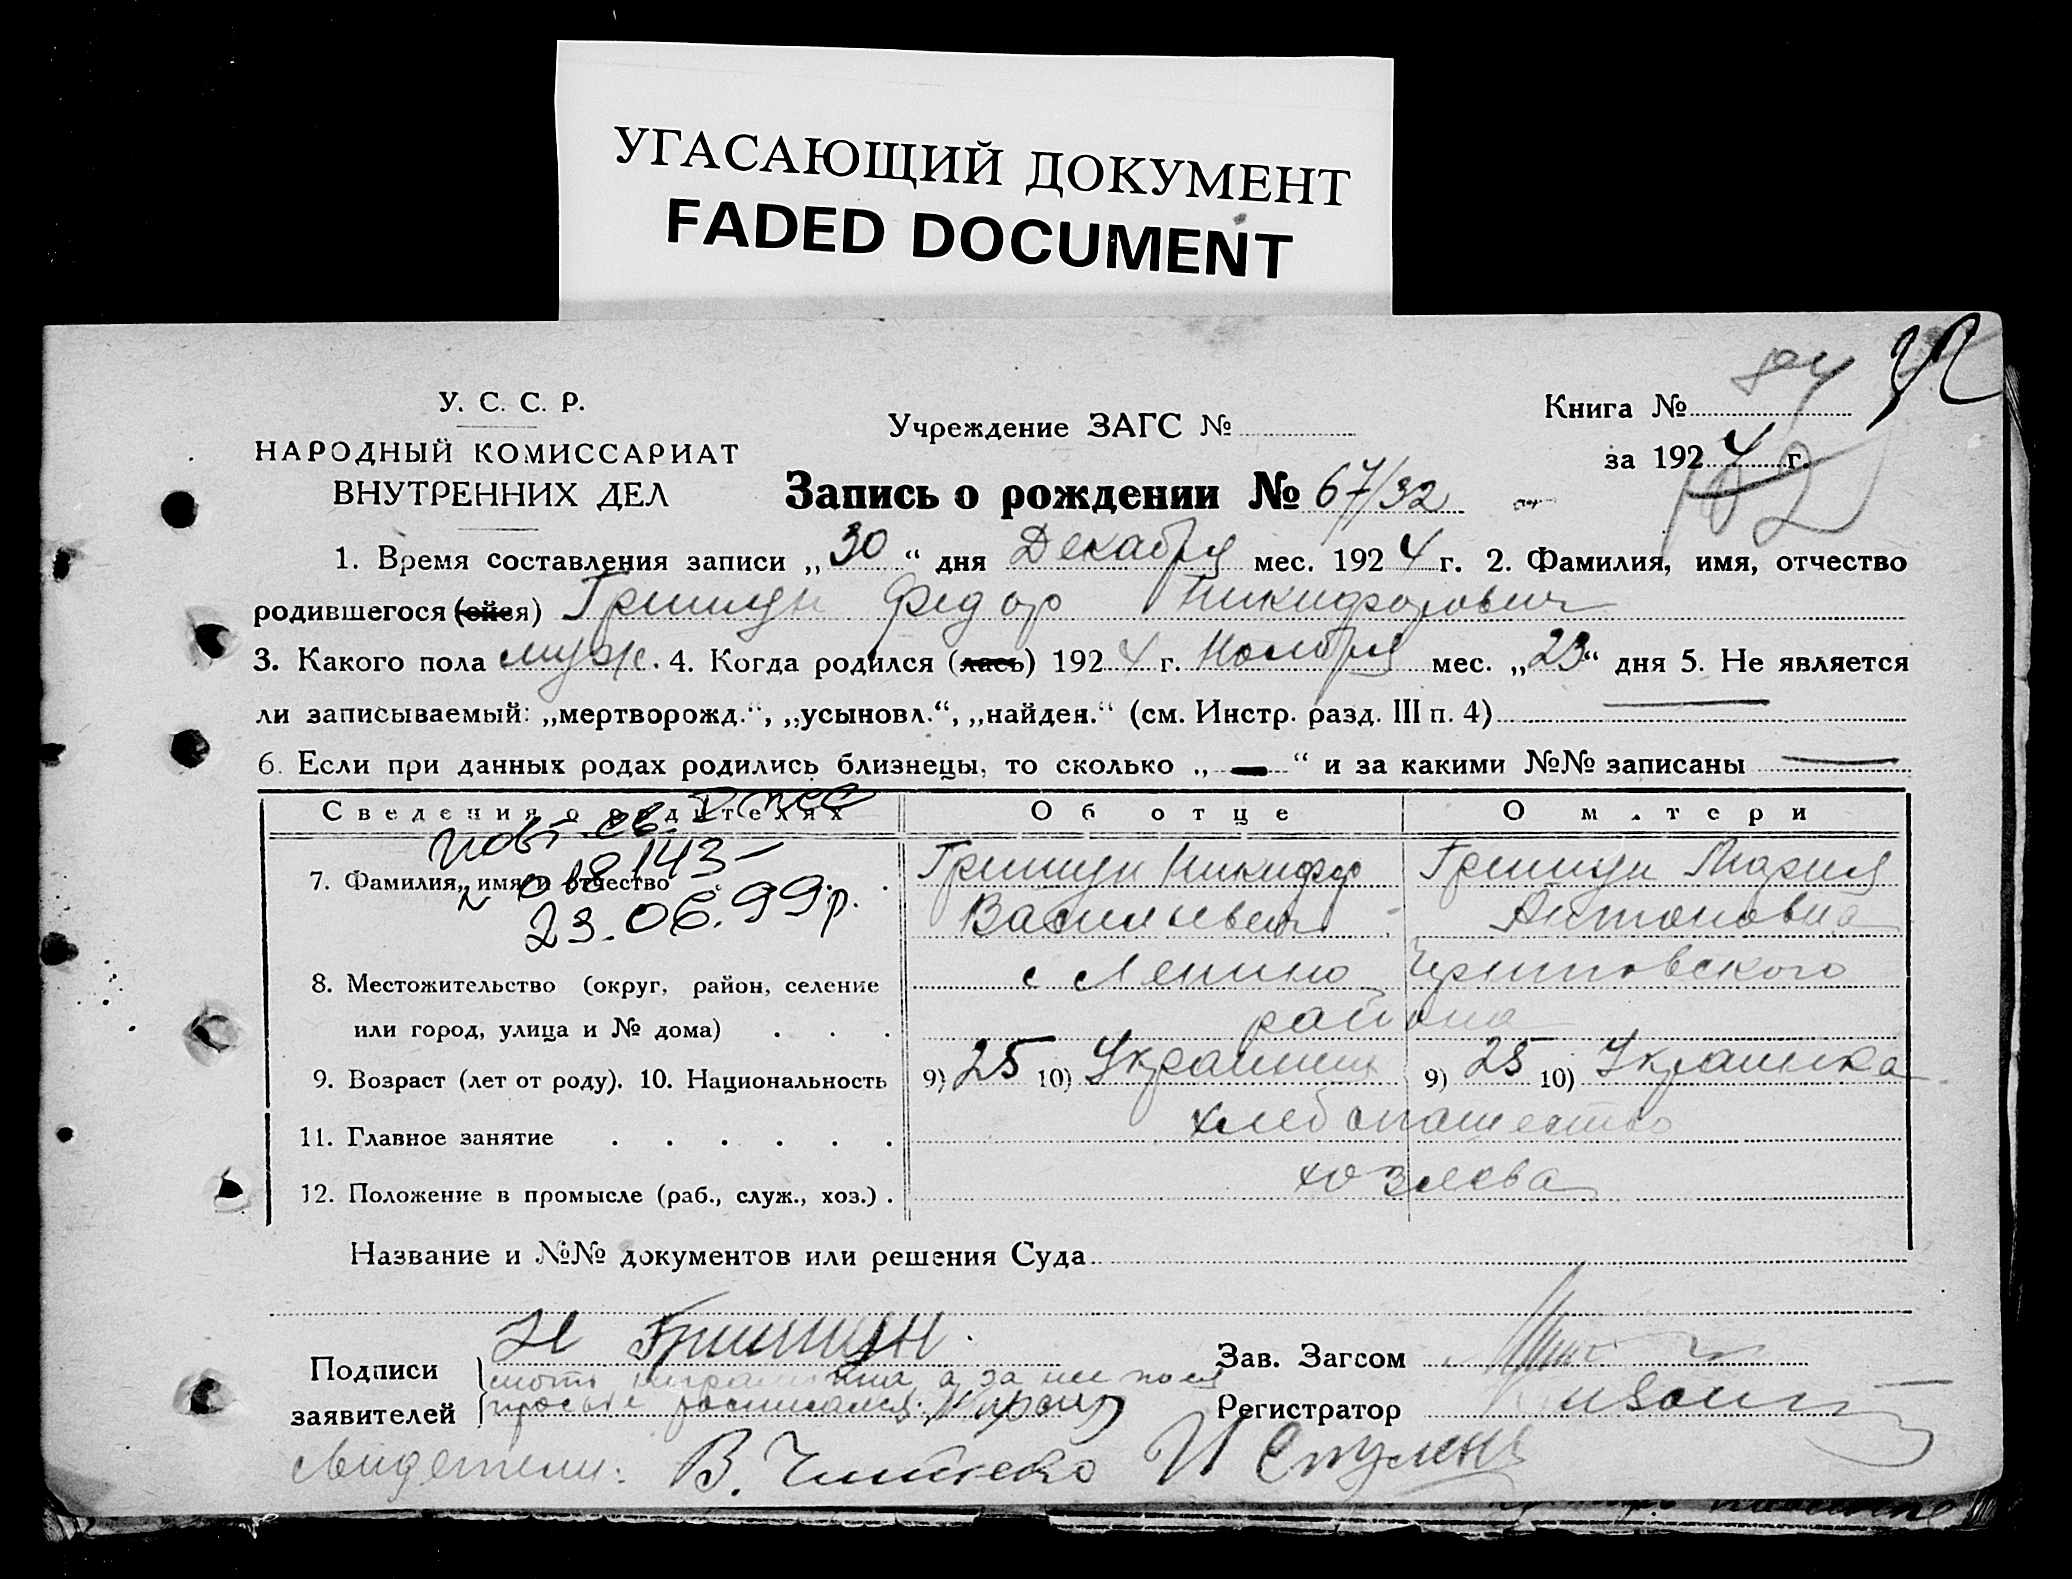 УГАСАЮЩИЙ ДОКУМЕНТ
FADED DOCUMENT
У. С. С. Р.
НАРОДНЫЙ КОМИССАРИАТ
ВНУТРЕННИХ ДЕЛ
Учреждение ЗАГС №
Книга № 84
за 1924 г.
102
Запись о рождении № 67/32
1. Время составления записи „30“ дня Декабря мес. 1924 г. 2. Фамилия, имя, отчество
родившегося (ойся) Гришун Федор Никифорович
3. Какого пола муж. 4. Когда родился (лась) 1924 г. Ноября мес. „23“ дня 5. Не является
ли записываемый: „мертворожд.“, „усыновл.“, „найден.“ (см. Инстр. разд. III п. 4) —
6. Если при данных родах родились близнецы, то сколько „—“ и за какими №№ записаны —
Сведения о родителях Об отце О матери
повт. св.
018143
23.06.99р.
7. Фамилия, имя и отчество Гришун Никифор Гришун Мария
Васильевич Антоновна
8. Местожительство (округ, район, селение с Ленино
или город, улица и № дома) района
9. Возраст (лет от роду). 10. Национальность 9) 25 10) Украинец 9) 25 10) Украинка
11. Главное занятие хлебопашество
12. Положение в промысле (раб., служ., хоз.) хозяева
Название и №№ документов или решения Суда
Подписи
заявителей
Н Гришун
а за нее по ея
просьбе расписался
Зав. Загсом
Регистратор
Свидетели: В.